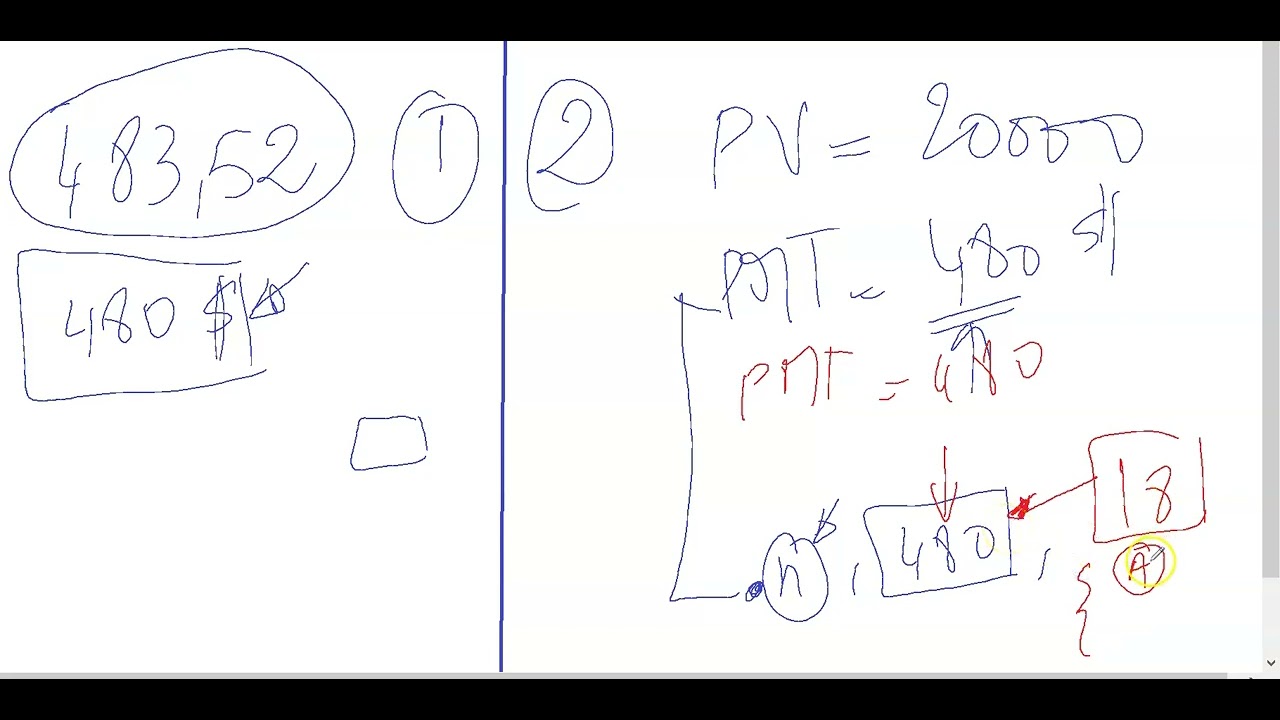 483,52
480 $
1
2
PV = 20000
PMT = 480 $
PMT = 480
n, 480, 18
A